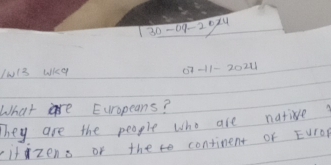 30-09-2024
07-11-2024
What are Europeans?
They are the people who are native
citizens of the continent of Europ